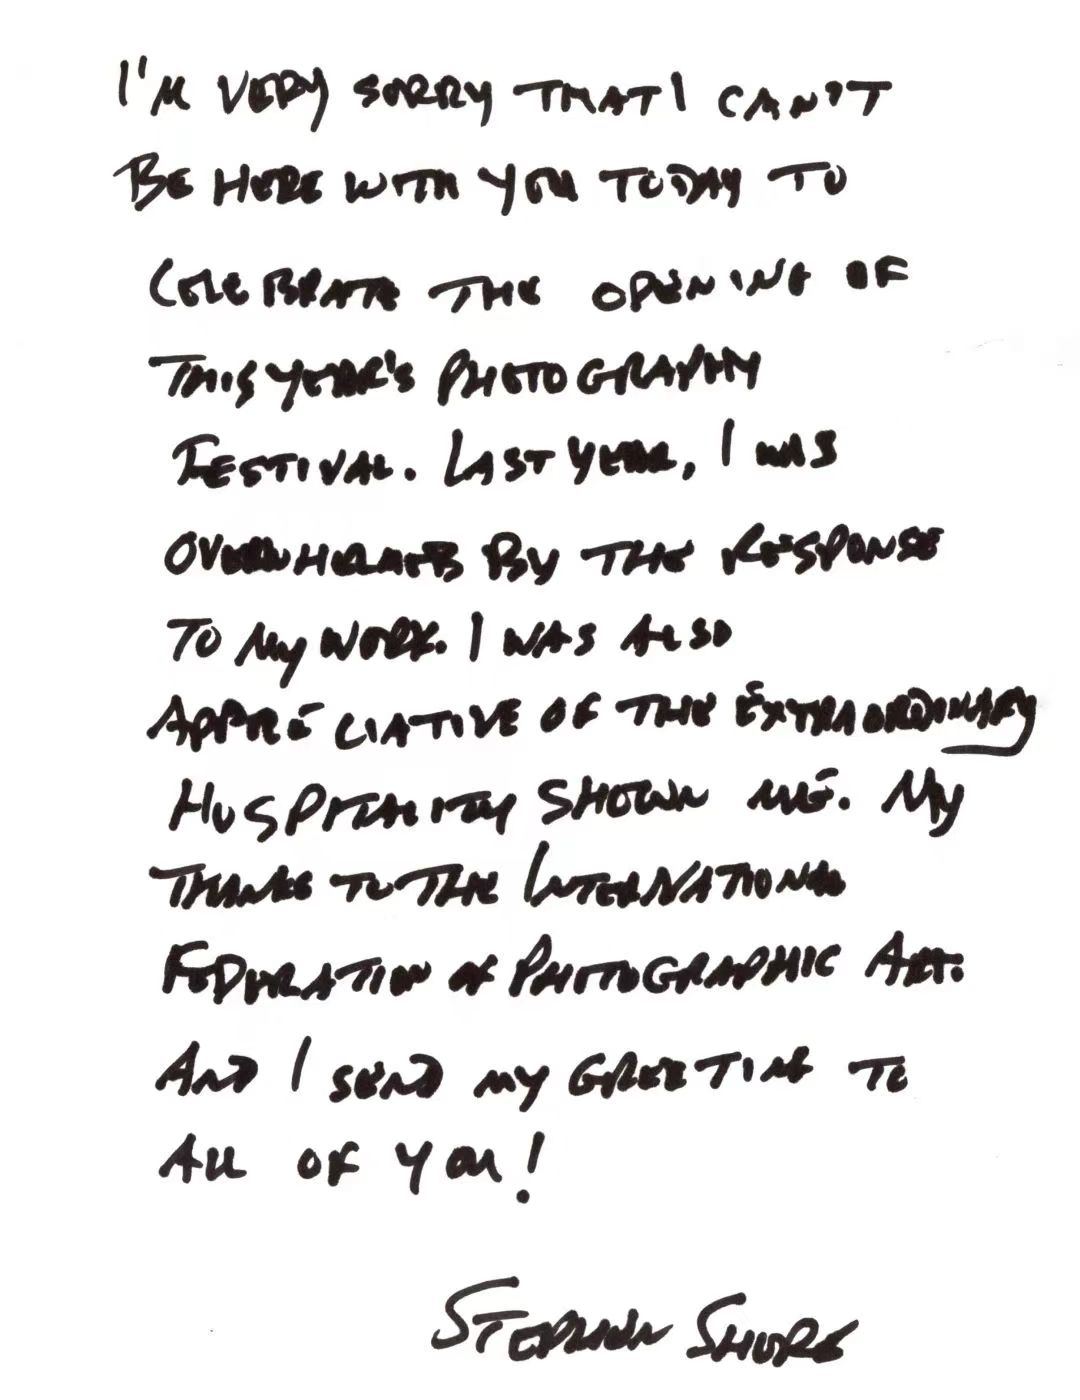 I'M VERY SORRY THAT I CAN'T
BE HERE WITH YOU TODAY TO
CELEBRATE THE OPENING OF
THIS YEAR'S PHOTOGRAPHY
FESTIVAL. LAST YEAR, I WAS
OVERWHELMED BY THE RESPONSE
TO MY WORK. I WAS ALSO
APPRECIATIVE OF THE EXTRAORDINARY
HOSPITALITY SHOWN ME. MY
THANKS TO THE INTERNATIONAL
FEDERATION OF PHOTOGRAPHIC ART.
AND I SEND MY GREETING TO
ALL OF YOU!
STEPHEN SHORE